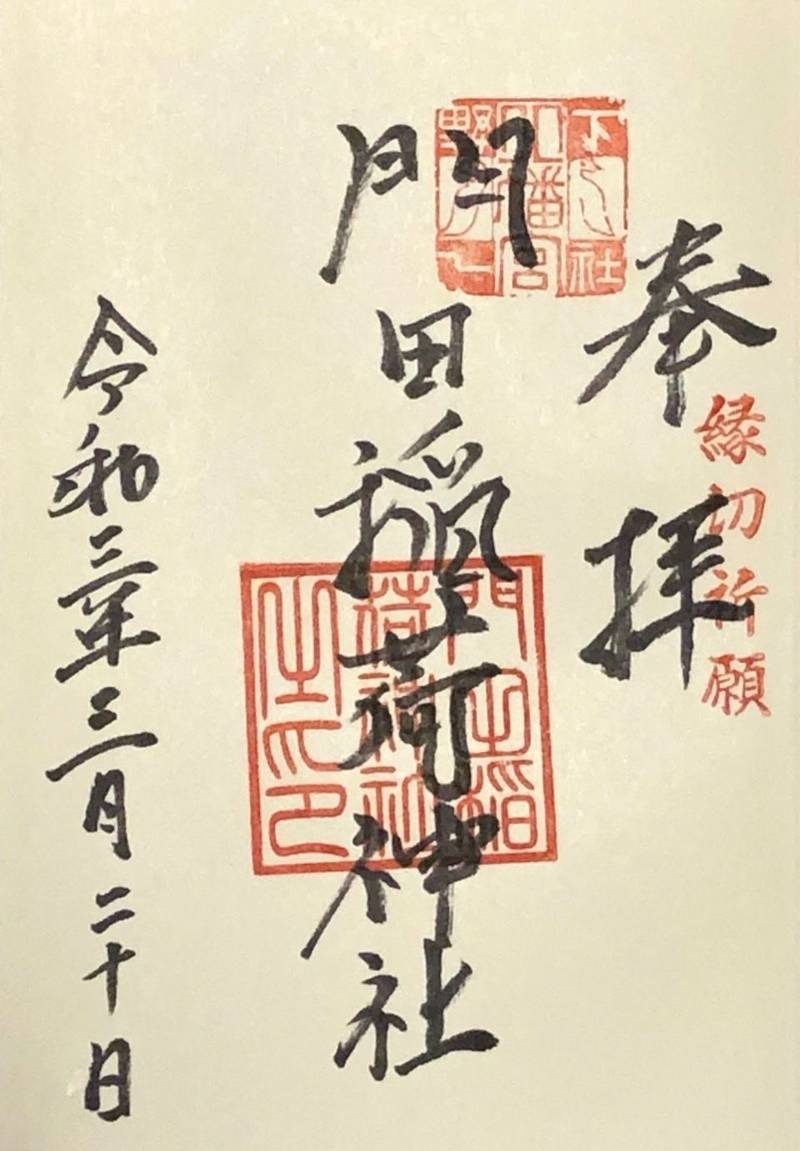 縁切祈願
奉拝
門田稲荷神社
門田稲
荷神社
之印
八幡宮
令和三年三月二十日